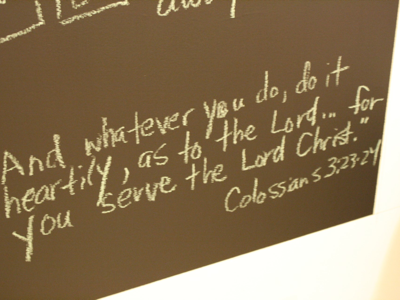 away
And whatever you do, do it
heartily, as to the Lord... for
you serve the Lord Christ."
Colossians 3:23-24